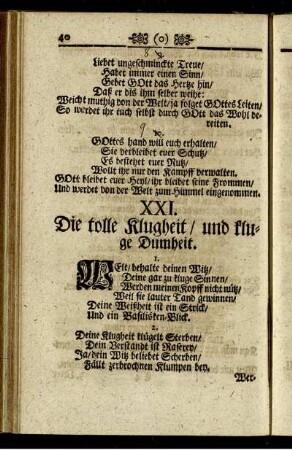 40 (o)
8
Liebet ungeschminckte Treue/
Habet immer einen Sinn/
Gebet GOtt das Hertze hin/
Daß er dis ihm selber weihe:
Weicht muthig von der Welt/ja folget GOttes Leiten/
So werdet ihr euch selbst durch GOtt das Wohl be-
reiten.
9
GOttes hand will euch erhalten/
Sie verbleibet euer Schutz/
Es bestehet euer Nutz/
Wollt ihr nur den Kampff verwalten.
GOtt bleibet euer Heyl/ihr bleibet seine Frommen/
Und werdet von der Welt zum Himmel eingenommen.
XXI.
Die tolle Klugheit/ und klu-
ge Dumheit.
1.
Welt/behalte deinen Witz/
Deine gar zu kluge Sinnen/
Werden meinen Kopff nicht nütz/
Weil sie lauter Tand gewinnen/
Deine Weißheit ist ein Strick/
Und ein Basilisken-Blick.
2.
Deine Klugheit klügelt Sterben/
Dein Verstandt ist Raserey/
Ja/dein Witz beliebet Scherben/
Fällt zerbrochnen Klumpen bey.
Wer-